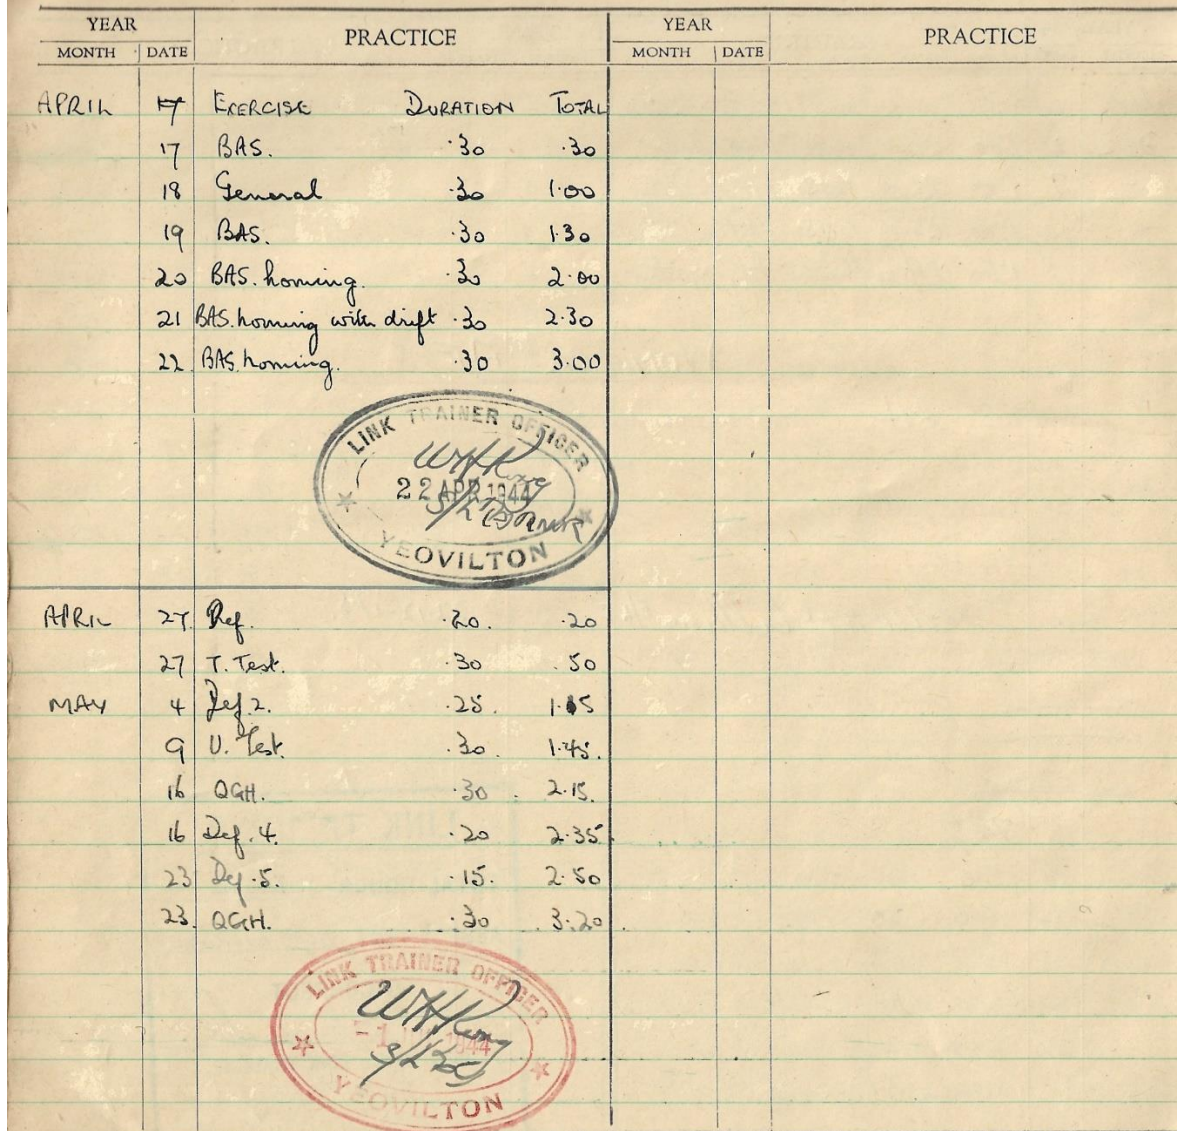 YEAR PRACTICE YEAR PRACTICE
MONTH DATE MONTH DATE
APRIL 17 EXERCISE DURATION TOTAL
17 BAS. .30 .30
18 General .30 1.00
19 BAS. .30 1.30
20 BAS. homing. .30 2.00
21 BAS. homing with drift .30 2.30
22 BAS. homing. .30 3.00
LINK TRAINER OFFICER
22 APR 1944
YEOVILTON
APRIL 27 Ref. .20. .20
27 T. Test. .30 .50
MAY 4 Def 2. .25. 1.15
9 U. Test. .30. 1.45.
16 QGH. .30. 2.15.
16 Def. 4. .20 2.35
23 Def. 5. .15. 2.50
23. QGH. .30 3.20
LINK TRAINER OFFICER
-1 1944
YEOVILTON